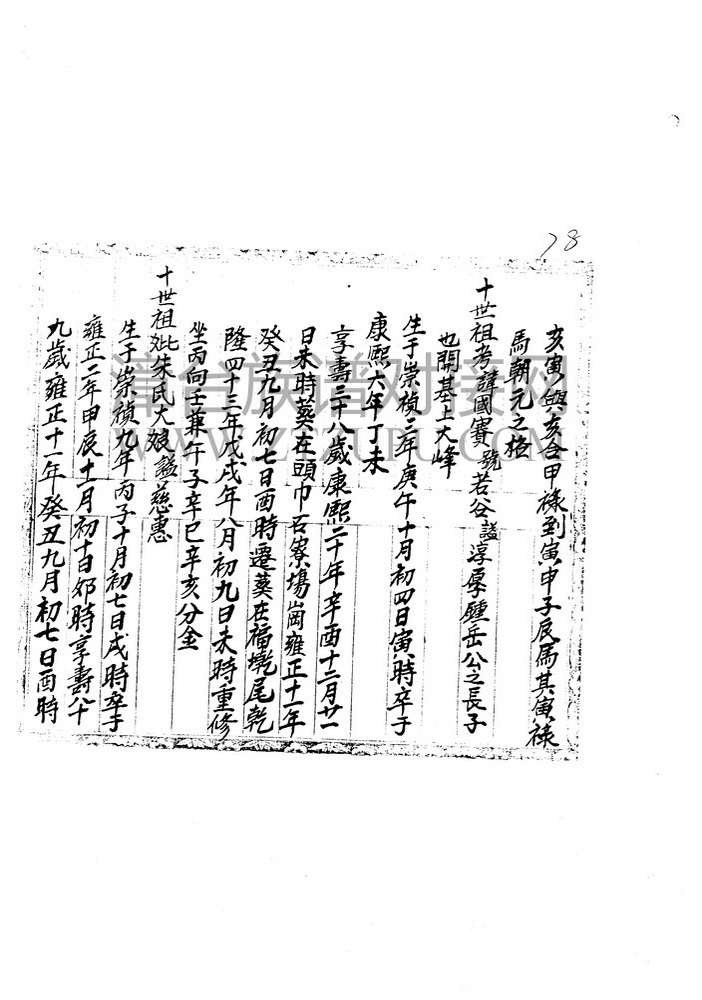 78
亥寅與亥合甲祿到寅申子辰馬其寅祿
馬朝元之格
十世祖考諱國賽號若谷謚淳厚鍾岳公之長子
也開基上大峰
生于崇禎三年庚午十月初四日寅時卒于
康熙六年丁未
享壽三十八歲康熙二十年辛酉十二月廿一
日未時葵在頭巾石寮塲崗雍正十一年
癸丑九月初七日酉時遷葵在福墩尾乾
隆四十三年戊戌年八月初九日未時重修
坐丙向壬兼午子辛巳辛亥分金
十世祖妣朱氏大娘謚慈惠
生于崇禎九年丙子十月初七日戌時卒于
雍正二年甲辰十一月初十日卯時享壽八十
九歲雍正十一年癸丑九月初七日酉時
漳台族谱对接网
WWW.ZTZUPU.COM